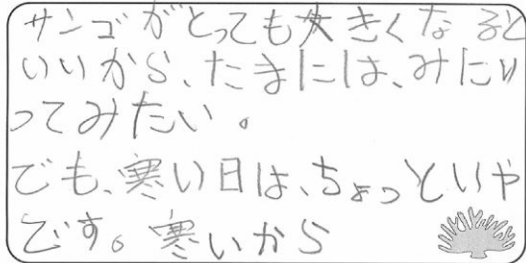 サンゴがとっても大きくなると
いいから、たまには、みにい
ってみたい。
でも、寒い日は、ちょっといや
です。寒いから